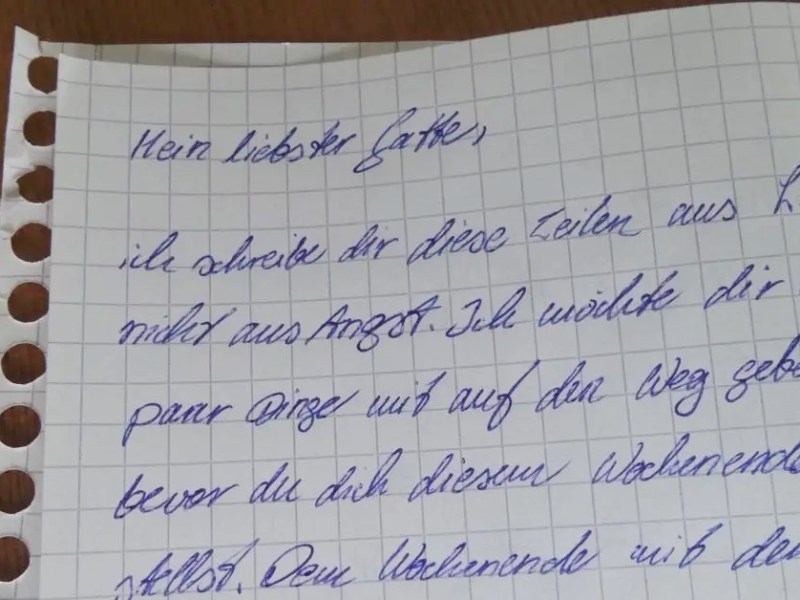 Mein liebster Gatte,
ich schreibe dir diese Zeilen aus L
nicht aus Angst. Ich möchte dir
paar Dinge mit auf den Weg gebe
bevor du dich diesem Wochenende
stellst. Dem Wochenende mit de